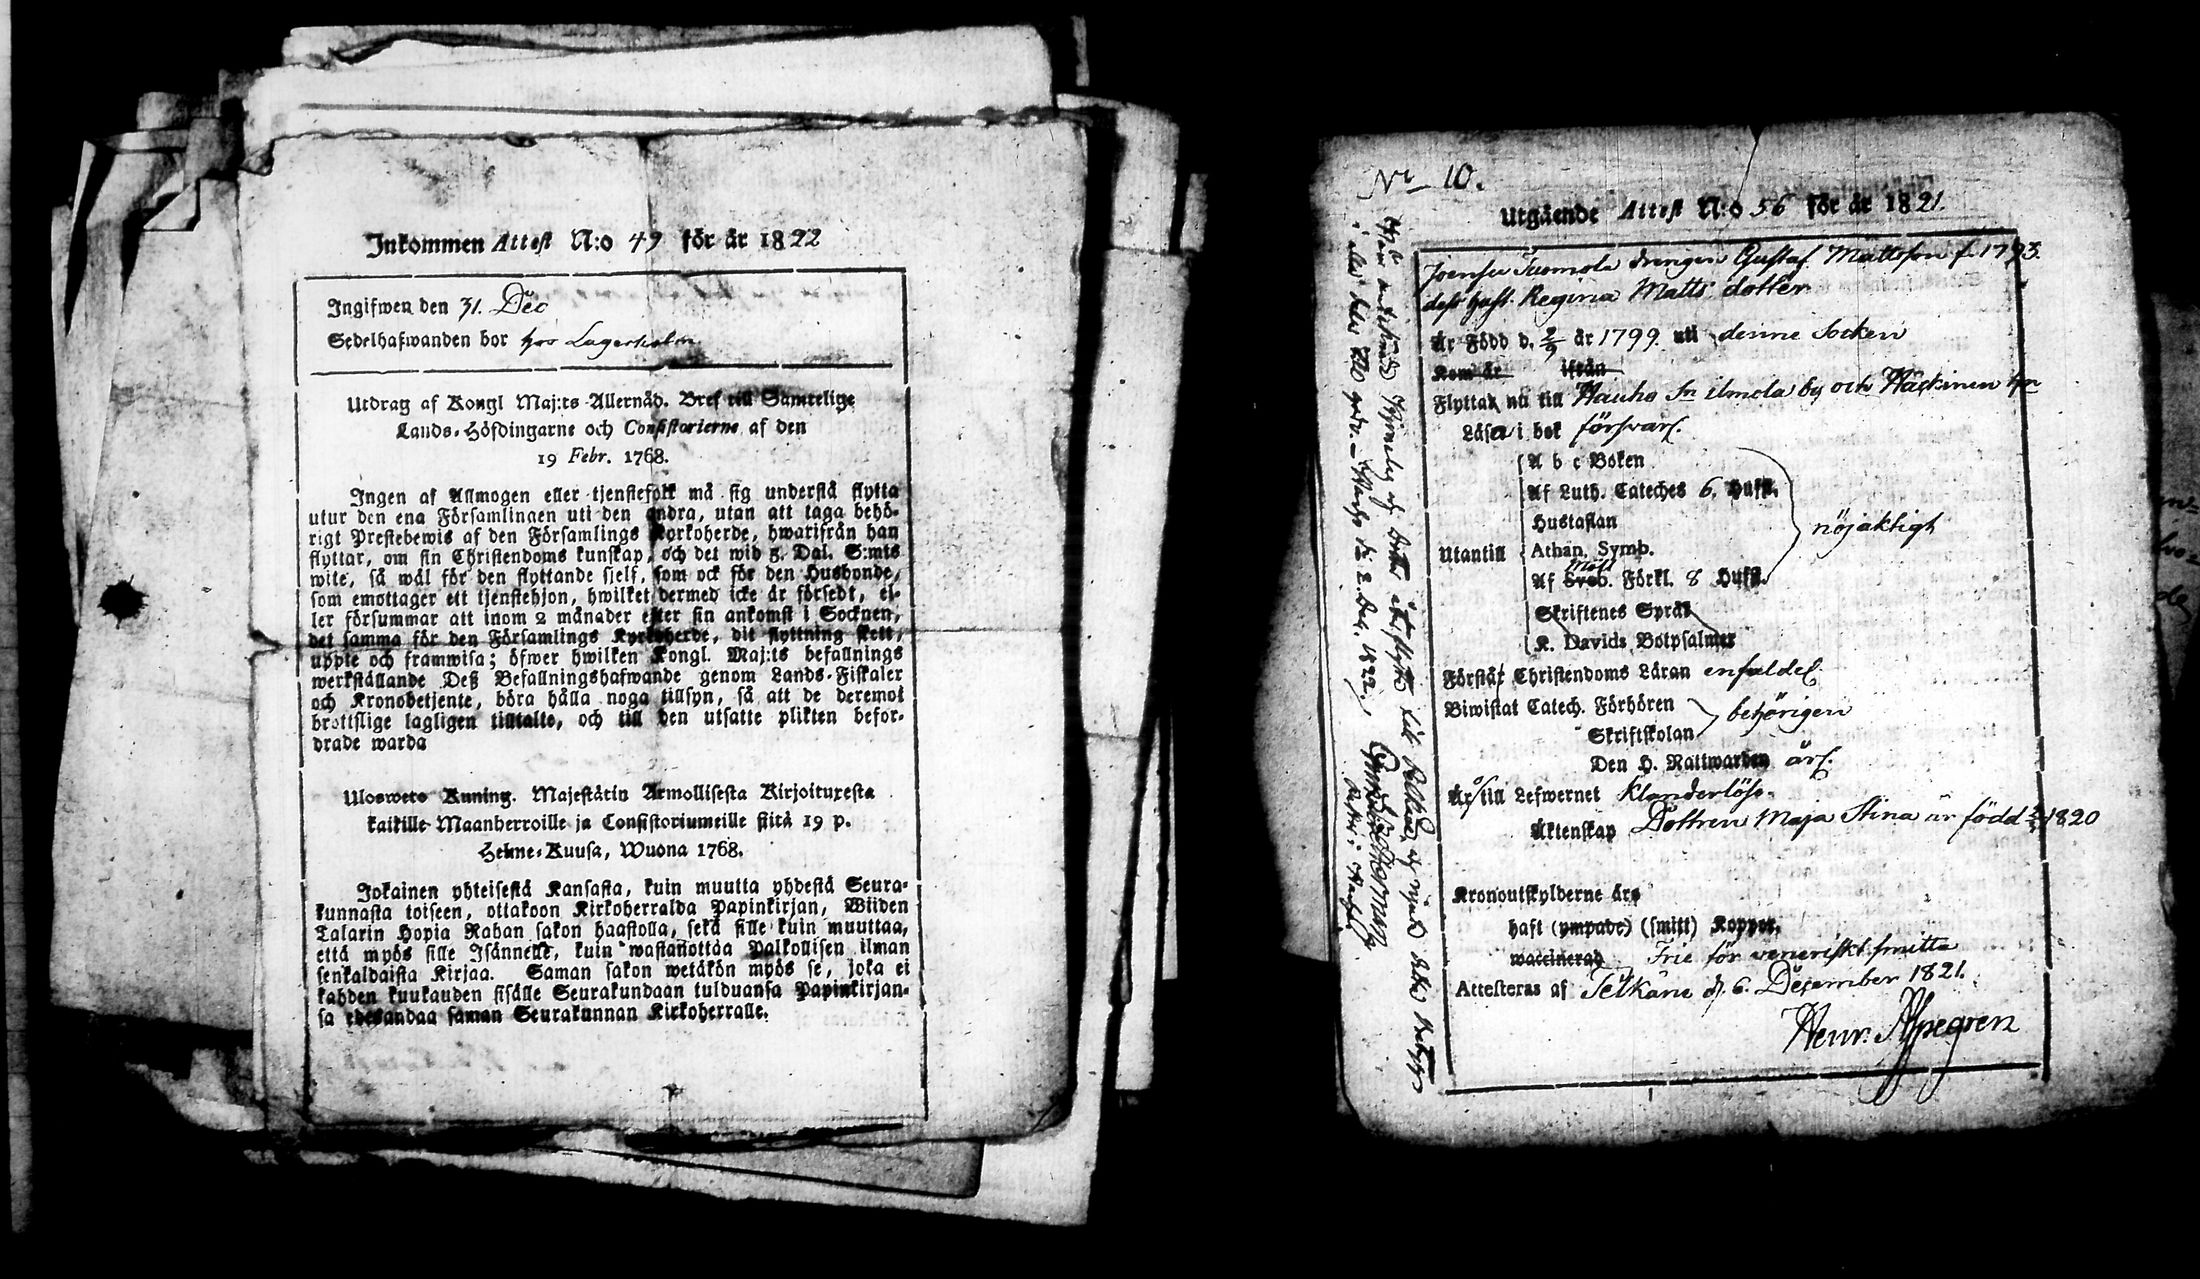 Inkommen Attest N:o 49 för år 1822
Ingifwen den 31. Dec
Sedelhafwanden bor hos Lagerholm
Utdrag af Kongl Maj:ts Allernåd. Bref till Samtelige
Lands-Höfdingarne och Consistorierne af den
19 Febr. 1768.
Ingen af Allmogen eller tjenstefolk må sig understå flytta
utur den ena Församlingen uti den andra, utan att taga behö-
rigt Prestebewis af den Församlings Kyrkoherde, hwarifrån han
flyttar, om sin Christendoms kunskap, och det wid 5. Dal. S:mts
wite, så wäl för den flyttande sjelf, som ock för den Husbonde,
som emottager ett tjenstehjon, hwilket dermed icke är försedt, el-
ler försummar att inom 2 månader efter sin ankomst i Socknen,
det samma för den Församlings Kyrkoherde, dit flyttning skett,
uppte och framwisa; öfwer hwilken Kongl. Maj:ts befallnings
werkställande Deß Befallningshafwande genom Lands-Fiskaler
och Kronobetjente, böra hålla noga tillsyn, så att de deremot
brottslige lagligen tilltalte, och till den utsatte plikten befor-
drade warda
Ulosweto Kuning. Majestätin Armollisesta Kirjoituxesta
kaikille Maanherroille ja Consistoriumeille siitä 19 p.
Helme-Kuusa, Wuona 1768.
Jokainen yhteisestä Kansasta, kuin muutta yhdestä Seura-
kunnasta toiseen, ottakoon Kirkoherralda Papinkirjan, Wiiden
Talarin Hopia Rahan sakon haastolla, sekä sille kuin muuttaa,
että myös sille Isännelle, kuin wastanottaa Palkollisen ilman
senkaldaista Kirjaa. Saman sakon wetäkön myös se, joka ei
kahden kuukauden sisälle Seurakundaan tulduansa Papinkirjan-
sa edesandaa saman Seurakunnan Kirkoherralle.
No 10.
Utgående Attest N:o 56 för år 1821.
Joensu Tuomola drengen Gustaf Mattsson f. 1793.
dess hust. Regina Matts dotter
Är Född d. 2/9 år 1799. uti denne Socken
Kom år ifrån
Flyttar nu till Hauho Sn ilmola by och Häckinen hn
Läsa i bok försvarl.
A b c Boken
Af Luth. Cateches 6. Hufst.
Hustaflan
Utantill Athan. Symb. nöjaktigt
Af Sveb. Möll Förkl. 8 Hufst.
Skriftenes Språk
K. Davids Botpsalmer
Förstår Christendoms Läran enfaldel.
Biwistat Catech. Förhören behörigen
Skriftskolan
Den H. Nattwarden ärl.
Är till Lefwernet klanderlöse.
Äktenskap Dottren Maja Stina är född 1820
Kronoutskylderne äro
haft (ympade) (smitt) Koppor.
waccinerad Frie för veneriskt smitta
Attesteras af Selkäne d. 6. December 1821.
Henr. Alpegren